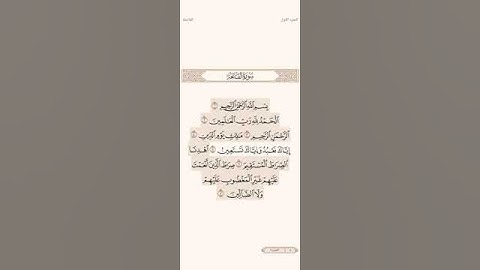 الفاتحة
الجزء الأول
سورة الفاتحة
بِسْمِ اللَّهِ الرَّحْمَٰنِ الرَّحِيمِ ١
الْحَمْدُ لِلَّهِ رَبِّ الْعَالَمِينَ ٢
الرَّحْمَٰنِ الرَّحِيمِ ٣ مَالِكِ يَوْمِ الدِّينِ ٤
إِيَّاكَ نَعْبُدُ وَإِيَّاكَ نَسْتَعِينُ ٥ اهْدِنَا
الصِّرَاطَ الْمُسْتَقِيمَ ٦ صِرَاطَ الَّذِينَ أَنْعَمْتَ
عَلَيْهِمْ غَيْرِ الْمَغْضُوبِ عَلَيْهِمْ
وَلَا الضَّالِّينَ ٧